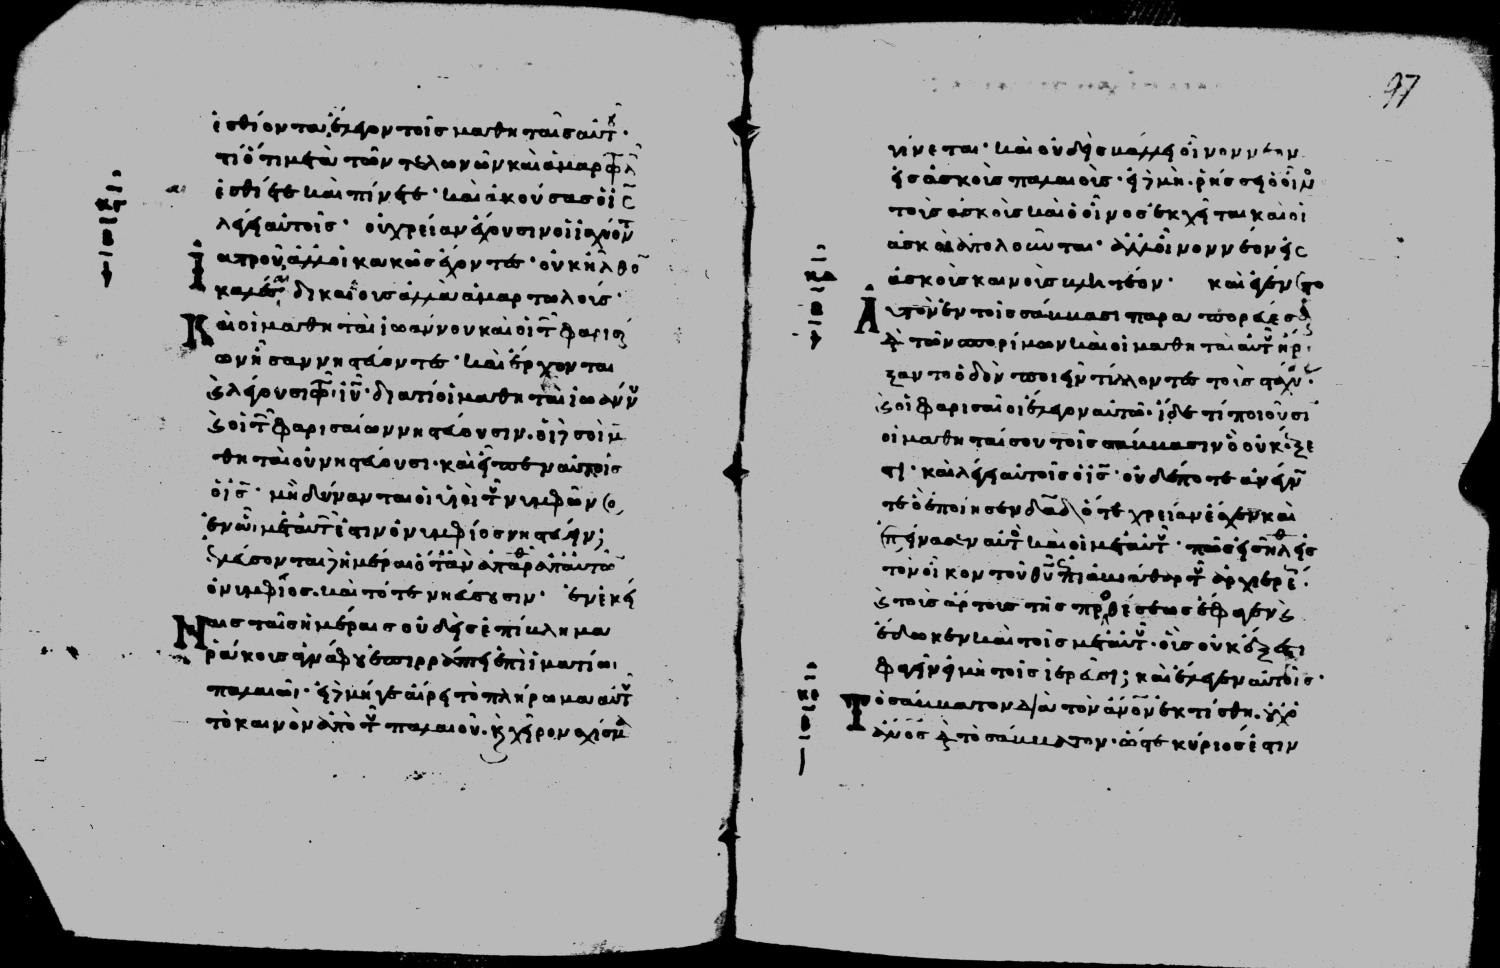 ἐσθίοντα, ἔλεγον τοῖς μαθηταῖς αὐτ·
τί ὅτι μετὰ τῶν τελωνῶν καὶ ἁμαρτλ
ἐσθίετε καὶ πίνετε· καὶ ἀκούσας ὁ ις
λέγει αὐτοῖς· οὐ χρείαν ἔχουσιν οἱ ἰσχύον
ιατροῦ, ἀλλ οἱ κακῶς ἔχοντες· οὐκ ἦλθον
καλέσαι δικαίους ἀλλὰ ἁμαρτωλούς·
Καὶ οἱ μαθηταὶ ἰωάννου καὶ οἱ τ φαρισ
ων ἦσαν νηστεύοντες· καὶ ἔρχονται
ϗ λέγουσι τ ιυ· διατί οἱ μαθηταὶ ἰωάνν
ϗ οἱ τ φαρισαίων νηστεύουσιν. οἱ δὲ σοὶ μ
θηταὶ οὐ νηστεύουσι· καὶ εἶπεν αὐτοῖς
ὁ ις· μὴ δύνανται οἱ υἱοὶ τ νυμφῶνο
ἐν ὧι μετ αὐτ ἐστιν ὁ νυμφίος νηστεύειν;
ἐλεύσονται δὲ ἡμέραι ὅταν ἀπαρθ ἀπ αὐτῶ
ὁ νυμφίος. καὶ τότε νηστεύσουσιν· ἐν ἐκεί
Ναις ταῖς ἡμέραις οὐδεὶς ἐπίβλημα
ῥάκους ἀγνάφου ἐπιρράπτει ἐπὶ ἱματίωι
παλαιῶι· εἰ δὲ μήγε αἴρει τὸ πλήρωμα αὐτ
τὸ καινὸν ἀπὸ τ παλαιοῦ. ϗ χεῖρον σχίσμ
97
γίνεται· καὶ οὐδεὶς βάλλει οἶνον νέον
εἰς ἀσκοὺς παλαιούς· εἰ δὲ μὴ. ῥήσσει ὁ οἶν
τοὺς ἀσκοὺς καὶ ὁ οἶνος ἐκχεῖται καὶ οἱ
ἀσκοὶ ἀπολοῦνται· ἀλλ οἶνον νέον εἰς
ἀσκοὺς καινοὺς βλητέον· καὶ ἐγένετο
Αυτὸν ἐν τοῖς σάββασι παραπορεύεσθ
δ τῶν σπορίμων καὶ οἱ μαθηταὶ αὐτ ἤρ
ξαν το ὁδὸν ποιεῖν τίλλοντες τοὺς στάχυ·
ϗ οἱ φαρισαῖοι ἔλεγον αὐτῶ· ἴδε τί ποιοῦσι
οἱ μαθηταί σου τοῖς σάββασιν ὃ οὐκ ἔξε
στι· καὶ λέγει αὐτοῖς ὁ ις· οὐδέποτε ἀνέγν
τε ὃ ἐποίησεν δαδ ὅτε χρείαν ἔσχεν καὶ
ἐπείνασεν αὐτ καὶ οἱ μετ αὐτ· πῶς εἰσῆλθεν εἰς
τὸν οἶκον τοῦ θυ ἐπὶ ἀβιάθαρ τ ἀρχιερε·
ϗ τοὺς ἄρτους τῆς προθέσεως ἔφαγεν ϗ
ἔδωκεν καὶ τοῖς μετ αὐτ· οὓς οὐκ ἔξεστι
φαγεῖν εἰ μὴ τοῖς ἱερεῦσι; καὶ ἔλεγεν αὐτοῖς·
Τὸ σάββατον διὰ τὸν ανον ἐκτίσθη. οὐχ ὁ
ανος δ τὸ σάββατον· ὥστε κύριός ἐστιν